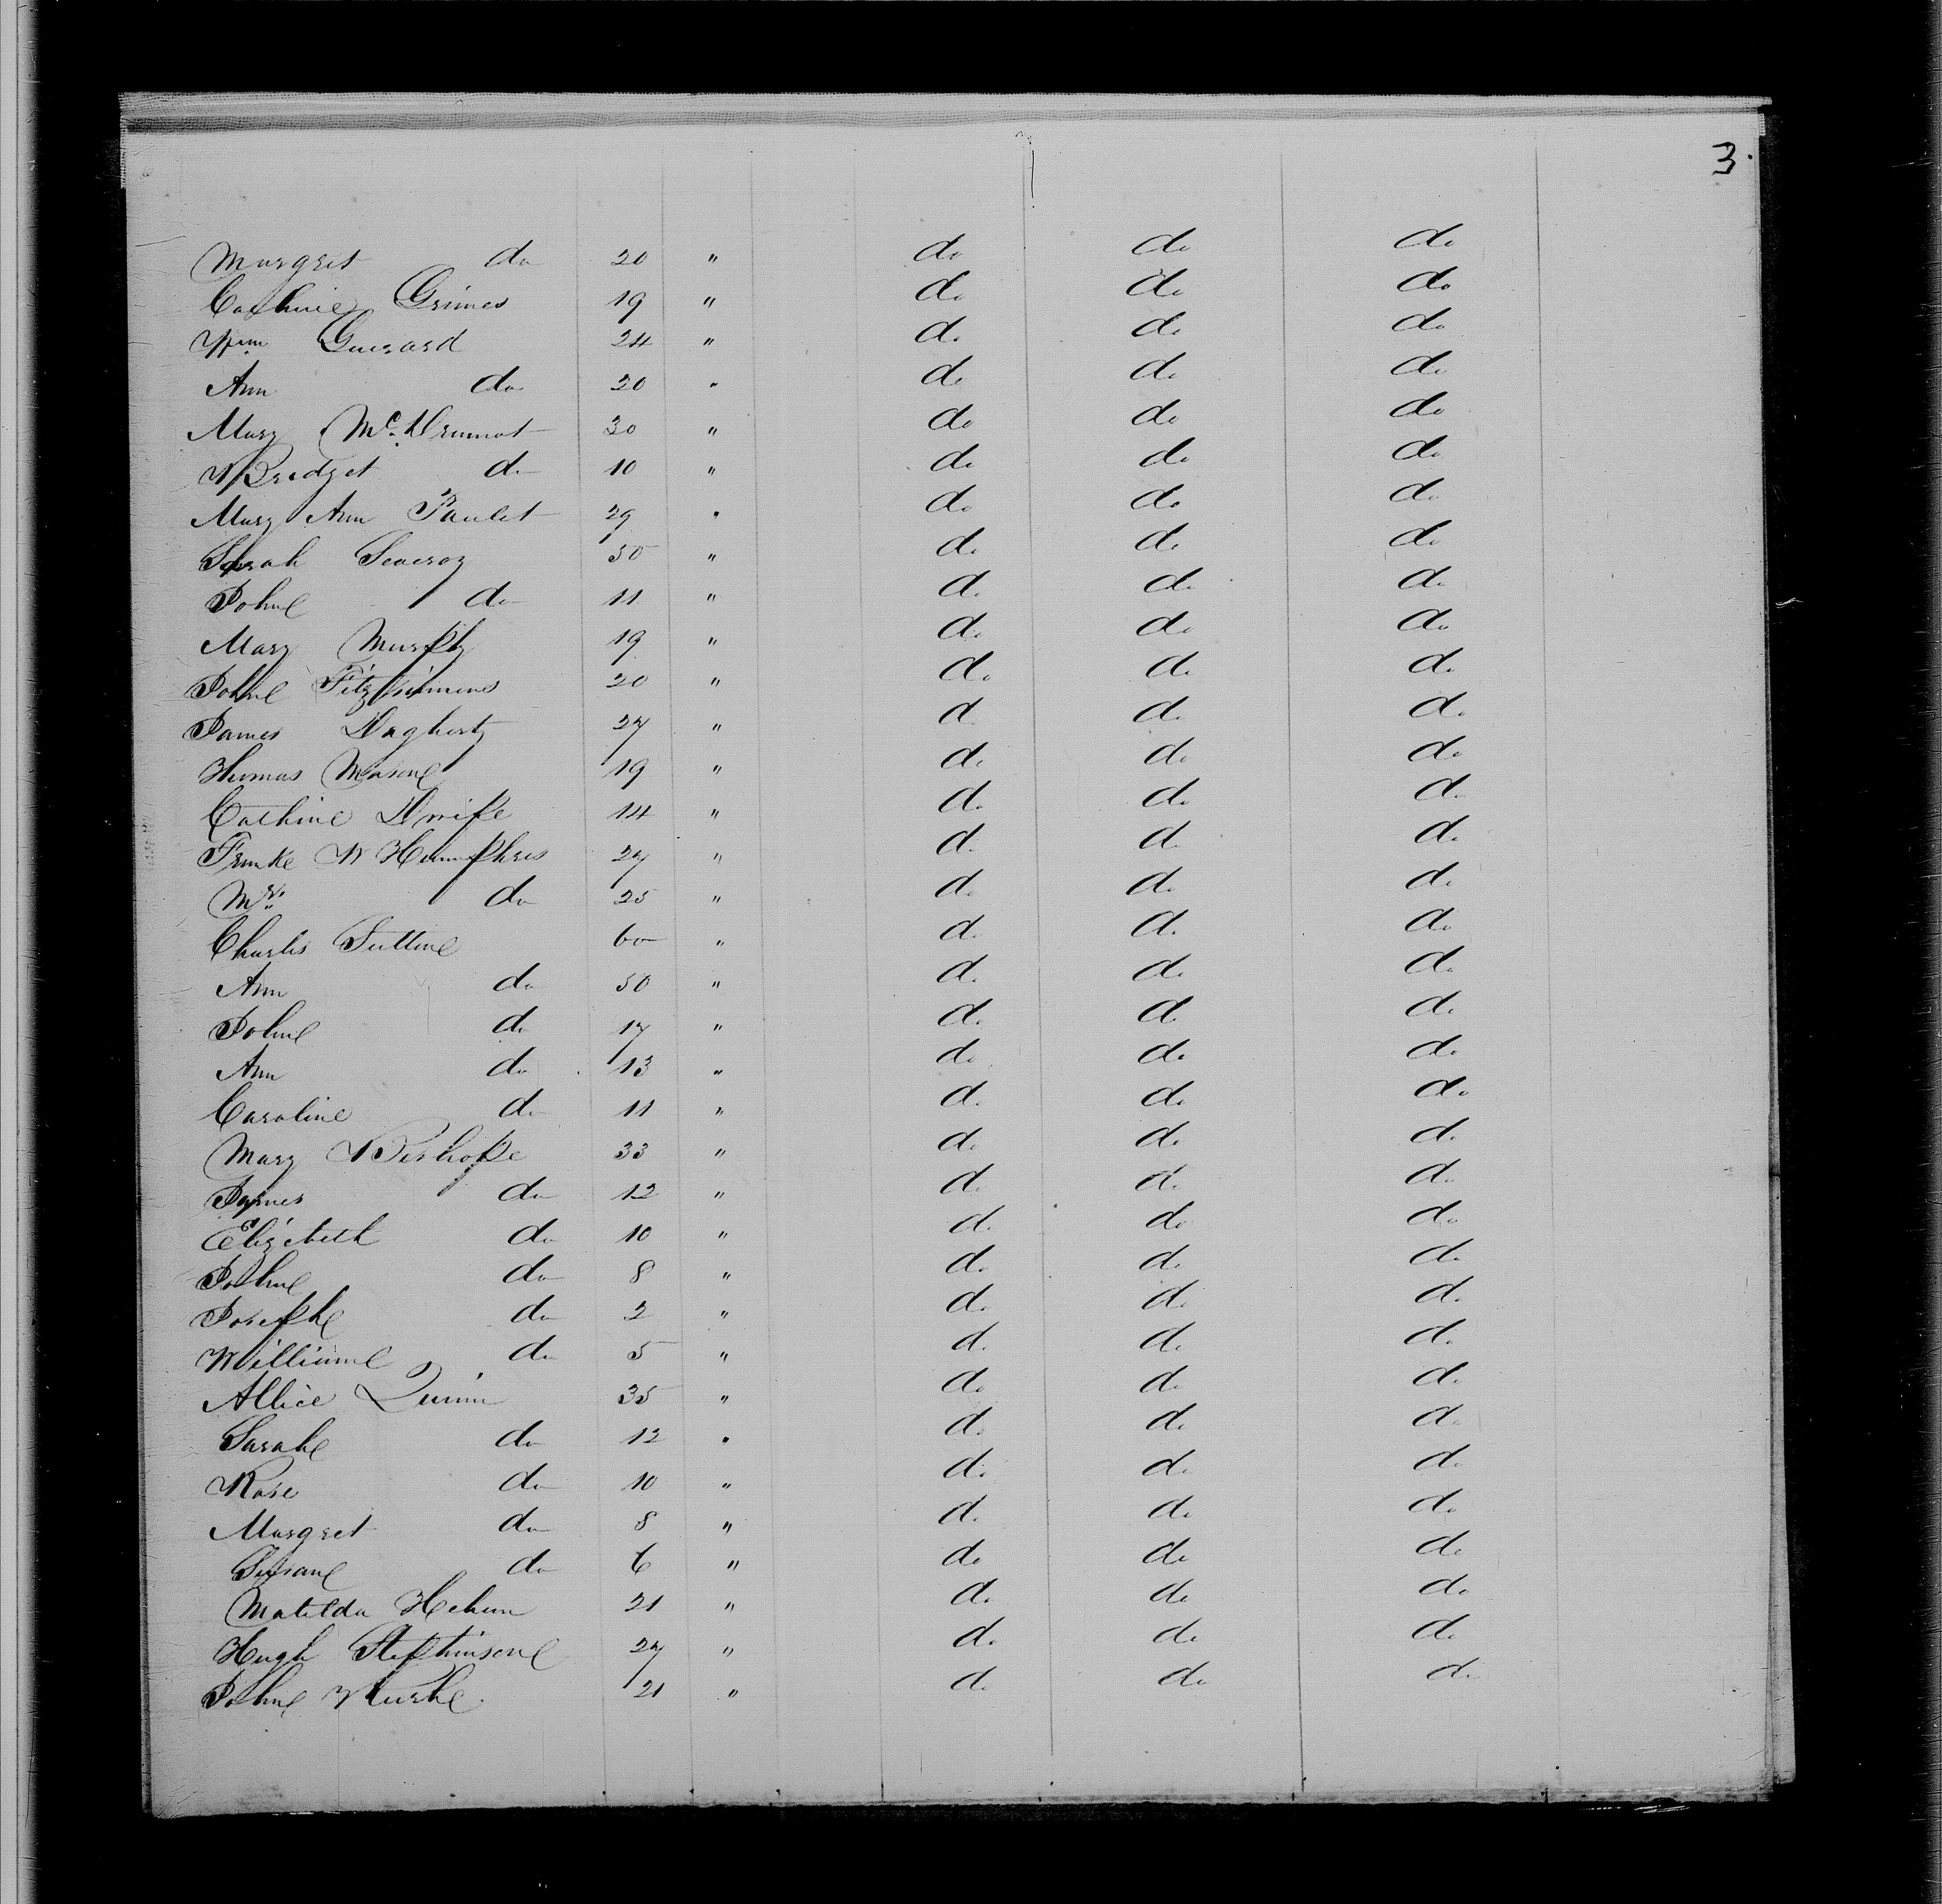 3.
Margret do 20 " do do do
Cathrine Grimes 19 " do do do
Wm Guerard 24 " do do do
Ann do 20 " do do do
Mary McDrumat 30 " do do do
Bridget do 10 " do do do
Mary Ann Paulet 29 " do do do
Sarah 50 " do do do
John do 11 " do do do
Mary Murphy 19 " do do do
John Fitzsimmons 20 " do do do
James Dagherty 27 " do do do
Thomas Mason 19 " do do do
Cathine 14 " do do do
Frank W Humphres 27 " do do do
Mrs do 25 " do do do
Charles Sutton 60 " do do do
Ann do 50 " do do do
John do 17 " do do do
Ann do 13 " do do do
Caroline do 11 " do do do
Mary Bishope 33 " do do do
James do 12 " do do do
Elizebeth do 10 " do do do
John do 8 " do do do
Joseph do 2 " do do do
William do 5 " do do do
Allice Quinn 35 " do do do
Sarah do 12 " do do do
Rose do 10 " do do do
Margret do 8 " do do do
Susan do 6 " do do do
Matilda 21 " do do do
Hugh Stephinson 27 " do do do
John 21 " do do do